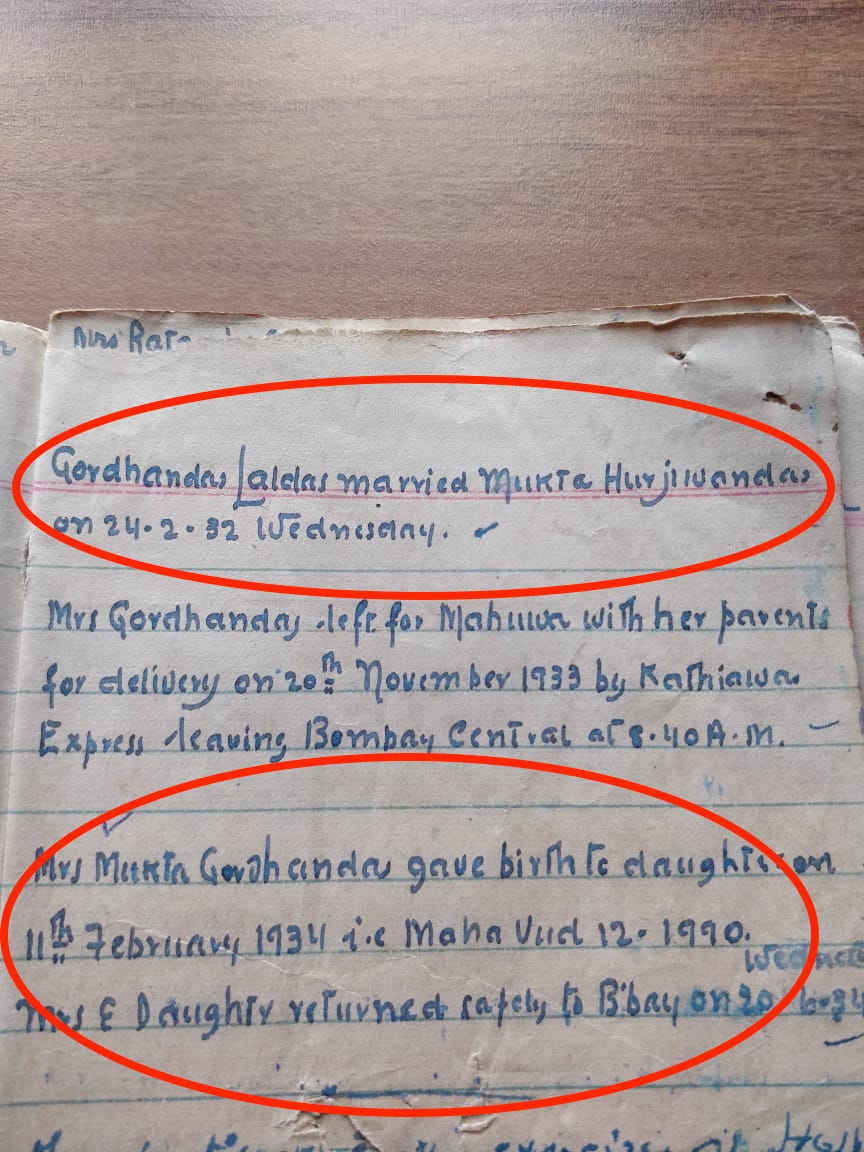 Mrs
Gordhandas Laldas married Mukta Hurjiwandas
on 24.2.32 Wednesday.
Mrs Gordhandas left for Mahuwa with her parents
for delivery on 20th November 1933 by Kathiawar
Express leaving Bombay Central at 8.40 A.M.
Mrs Mukta Gordhandas gave birth to daughter on
11th February 1934 i.e Maha Vud 12. 1990.
Mrs & Daughtr returned safely to B'bay on 20 6.34